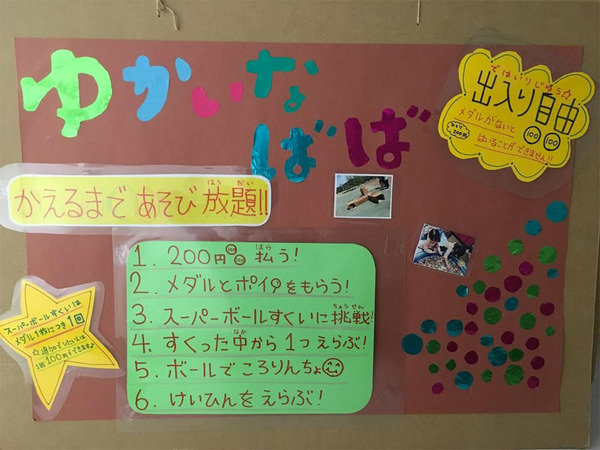 ゆかいな
ばば
ではいりじゆう☆
出入り自由
メダルがないと
はいることができません!!
100 100
かえるまで あそび 放題!!
ほう だい
1. 200円 払う!
はら
2. メダルとポイをもらう!
3. スーパーボールすくいに挑戦!
ちょうせん
4. すくった中から1つえらぶ!
なか
5. ボールでころりんちょ
6. けいひんをえらぶ!
スーパーボールすくいは
メダル1枚につき1回